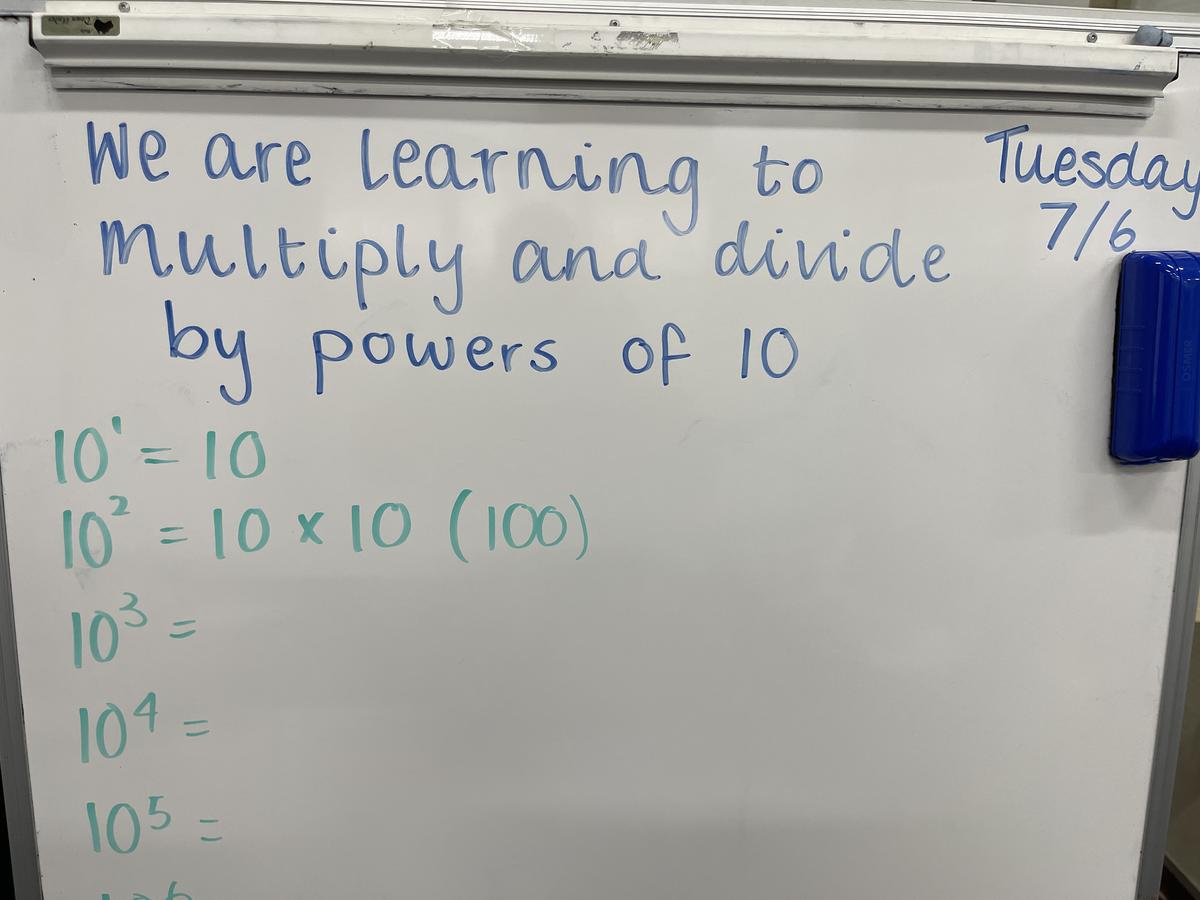 We are learning to
Multiply and divide
by powers of 10
Tuesday
7/6
10¹ = 10
10² = 10 × 10 (100)
10³ =
10⁴ =
10⁵ =
10⁶
OSMER